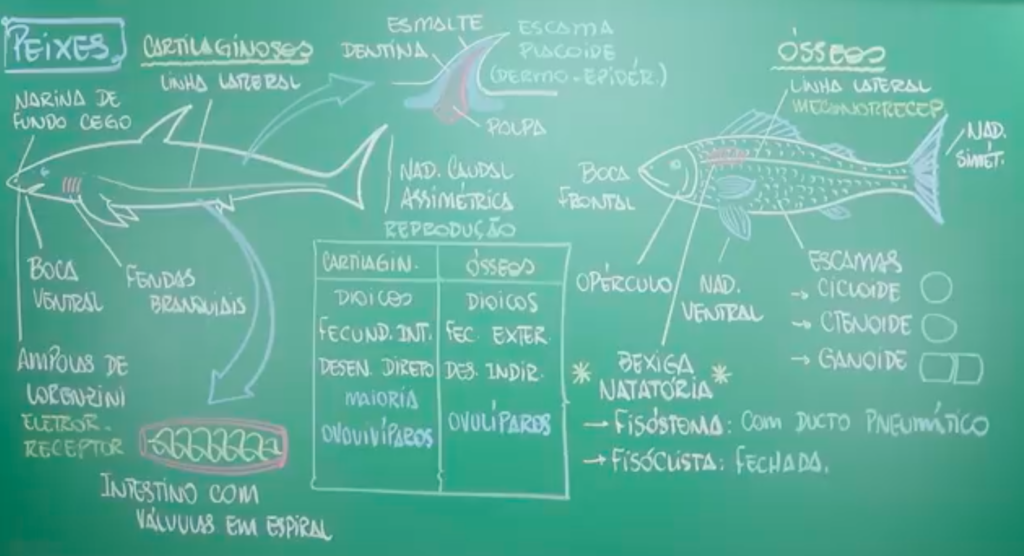 PEIXES
CARTILAGINOSOS
LINHA LATERAL
NARINA DE
FUNDO CEGO
ESMALTE
DENTINA
ESCAMA
PLACOIDE
(DERMO-EPIDÉR.)
POLPA
NAD. CAUDAL
ASSIMÉTRICA
BOCA
VENTRAL
FENDAS
BRANQUIAIS
AMPOLAS DE
LORENZINI
ELETROR-
RECEPTOR
INTESTINO COM
VÁLVULAS EM ESPIRAL
REPRODUÇÃO
CARTILAGIN. ÓSSEOS
DIOICOS DIOICOS
FECUND. INT. FEC. EXTER.
DESEN. DIRETO DES. INDIR.
MAIORIA
OVOVIVÍPAROS OVULÍPAROS
ÓSSEOS
LINHA LATERAL
MECANORRECEP
NAD.
SIMÉT.
BOCA
FRONTAL
OPÉRCULO
NAD.
VENTRAL
ESCAMAS
→ CICLOIDE
→ CTENOIDE
→ GANOIDE
* BEXIGA *
NATATÓRIA
→ FISÓSTOMA: COM DUCTO PNEUMÁTICO
→ FISÓCLISTA: FECHADA.